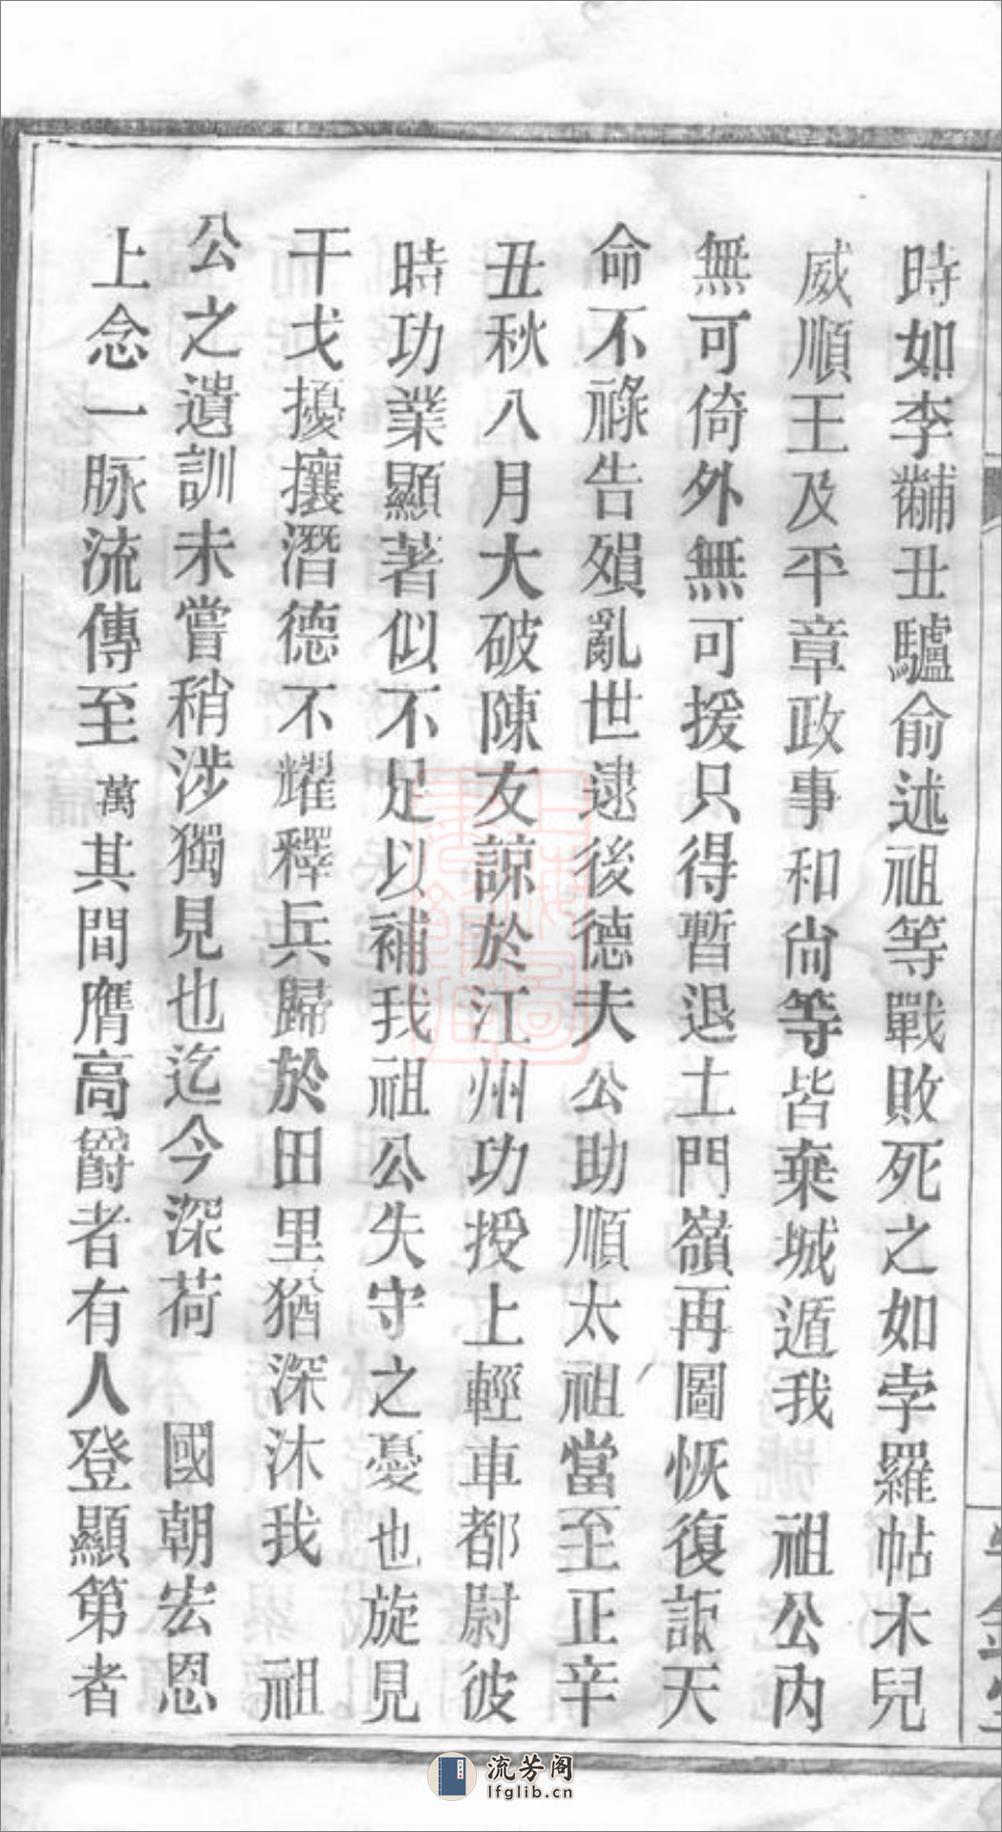 時如李黼丑驢俞述祖等戰敗死之如孛羅帖木兒
威順王及平章政事和尚等皆棄城遁我 祖公內
無可倚外無可援只得暫退土門嶺再圖恢復詎天
命不祿告殞亂世逮後德夫公助順太祖當至正辛
丑秋八月大破陳友諒於江州功授上輕車都尉彼
時功業顯著似不足以補我祖公失守之憂也旋見
干戈擾攘潛德不耀釋兵歸於田里猶深沐我 祖
公之遺訓未嘗稍涉獨見也迄今深荷 國朝宏恩
上念一脉流傳至萬其間膺高爵者有人登顯第者
流芳阁
lfglib.cn